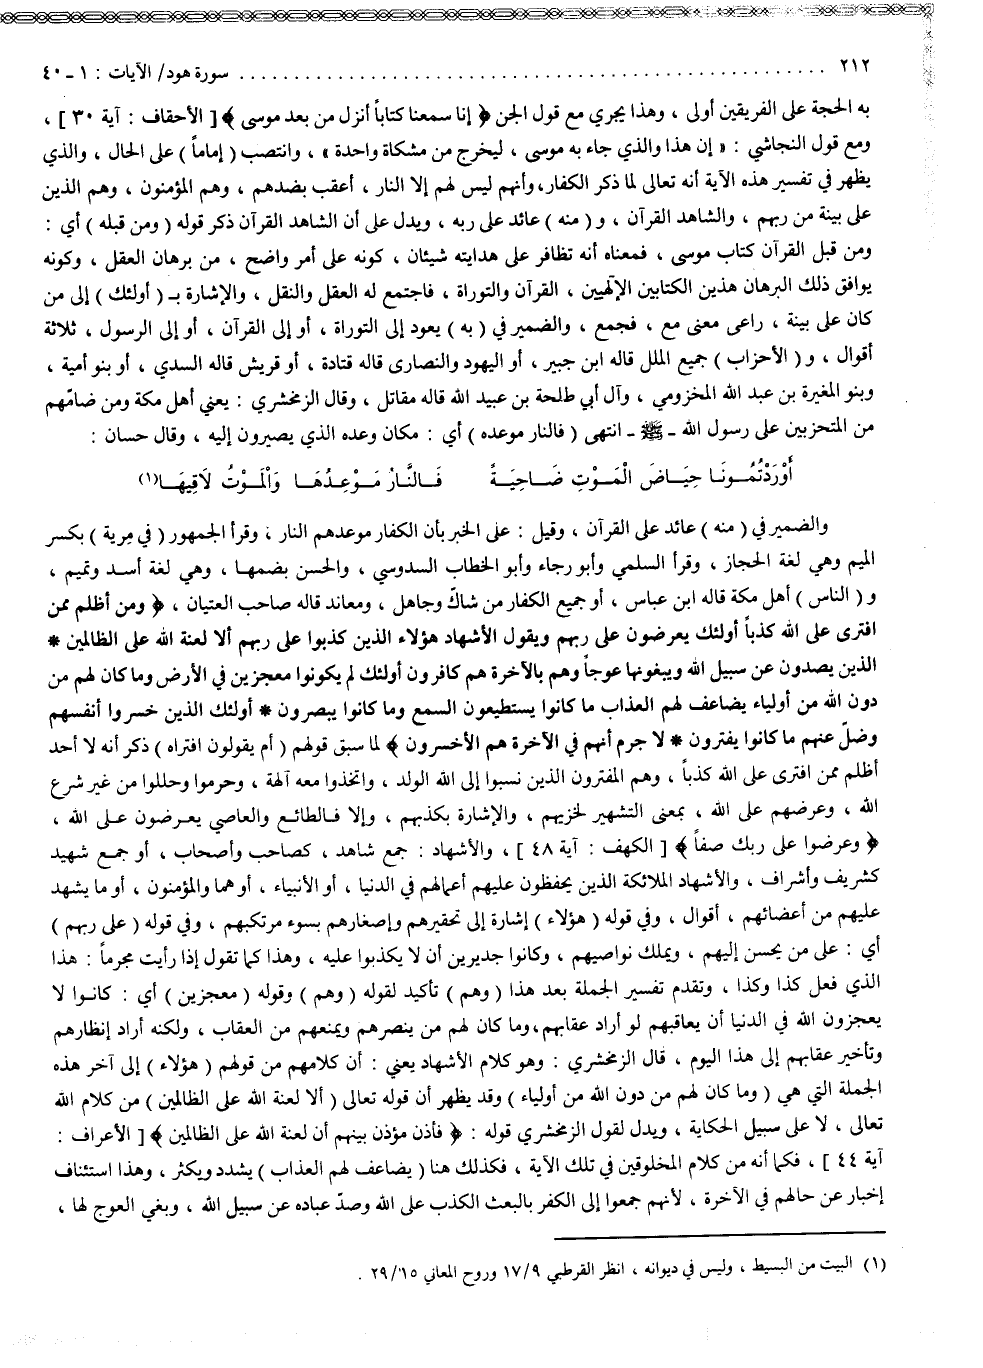 ٢١٢ ........................................ سورة هود/ الآيات : ١ - ٤٠
به الحجة على الفريقين أولى ، وهذا يجري مع قول الجن ﴿ إنا سمعنا كتاباً أنزل من بعد موسى ﴾ [ الأحقاف : آية ٣٠ ] ،
ومع قول النجاشي : « إن هذا والذي جاء به موسى ، ليخرج من مشكاة واحدة » ، وانتصب ( إماماً ) على الحال ، والذي
يظهر في تفسير هذه الآية أنه تعالى لما ذكر الكفار، وأنهم ليس لهم إلا النار ، أعقب بضدهم ، وهم المؤمنون ، وهم الذين
على بينة من ربهم ، والشاهد القرآن ، و ( منه ) عائد على ربه ، ويدل على أن الشاهد القرآن ذكر قوله ( ومن قبله ) أي :
ومن قبل القرآن كتاب موسى ، فمعناه أنه تظافر على هدايته شيئان ، كونه على أمر واضح ، من برهان العقل ، وكونه
يوافق ذلك البرهان هذين الكتابين الإلهيين ، القرآن والتوراة ، فاجتمع له العقل والنقل ، والإشارة بـ ( أولئك ) إلى من
كان على بينة ، راعى معنى مع ، فجمع ، والضمير في ( به ) يعود إلى التوراة ، أو إلى القرآن ، أو إلى الرسول ، ثلاثة
أقوال ، و ( الأحزاب ) جميع الملل قاله ابن جبير ، أو اليهود والنصارى قاله قتادة ، أو قريش قاله السدي ، أو بنو أمية ،
وبنو المغيرة بن عبد الله المخزومي ، وآل أبي طلحة بن عبيد الله قاله مقاتل ، وقال الزمخشري : يعني أهل مكة ومن ضامّهم
من المتحزبين على رسول الله ـ ﷺ ـ انتهى ( فالنار موعده ) أي : مكان وعده الذي يصيرون إليه ، وقال حسان :
أَوْرَدْتُمُـونَـا حِيَاضَ الْمَوْتِ ضَـاحِيَـةً فَـالنَّـارُ مَـوْعِـدُهَـا وَالْمَـوْتُ لَاقِيهَـا(١)
والضمير في ( منه ) عائد على القرآن ، وقيل : على الخبر بأن الكفار موعدهم النار ، وقرأ الجمهور ( في مرية ) بكسر
الميم وهي لغة الحجاز ، وقرأ السلمي وأبو رجاء وأبو الخطاب السدوسي ، والحسن بضمهـا ، وهي لغة أسـد وتميم ،
و ( الناس ) أهل مكة قاله ابن عباس ، أو جميع الكفار من شاكّ وجاهل ، ومعاند قاله صاحب العتيان ، ﴿ ومن أظلم ممن
افترى على الله كذباً أولئك يعرضون على ربهم ويقول الأشهاد هؤلاء الذين كذبوا على ربهم ألا لعنة الله على الظالمين *
الذين يصدون عن سبيل الله ويبغونها عوجاً وهم بالآخرة هم كافرون أولئك لم يكونوا معجزين في الأرض وما كان لهم من
دون الله من أولياء يضاعف لهم العذاب ما كانوا يستطيعون السمع وما كانوا يبصرون * أولئك الذين خسروا أنفسهم
وضلّ عنهم ما كانوا يفترون * لا جرم أنهم في الآخرة هم الأخسرون ﴾ لما سبق قولهم ( أم يقولون افتراه ) ذكر أنه لا أحد
أظلم ممن افترى على الله كذباً ، وهم المفترون الذين نسبوا إلى الله الولد ، واتخذوا معه آلهة ، وحرموا وحللوا من غير شرع
الله ، وعرضهم على الله ، بمعنى التشهير لخزيهم ، والإشارة بكذبهم ، وإلا فـالطائـع والعاصي يعـرضون عـلى الله ،
﴿ وعرضوا على ربك صفاً ﴾ [ الكهف : آية ٤٨ ] ، والأشهاد : جمع شاهد ، كصاحب وأصحاب ، أو جمع شهيد
كشريف وأشراف ، والأشهاد الملائكة الذين يحفظون عليهم أعمالهم في الدنيا ، أو الأنبياء ، أو هما والمؤمنون ، أو ما يشهد
عليهم من أعضائهم ، أقوال ، وفي قوله ( هؤلاء ) إشارة إلى تحقيرهم وإصغارهم بسوء مرتكبهم ، وفي قوله ( على ربهم )
أي : على من يحسن إليهم ، ويملك نواصيهم ، وكانوا جديرين أن لا يكذبوا عليه ، وهذا كما تقول إذا رأيت مجرماً : هذا
الذي فعل كذا وكذا ، وتقدم تفسير الجملة بعد هذا ( وهم ) تأكيد لقوله ( وهم ) وقوله ( معجزين ) أي : كانـوا لا
يعجزون الله في الدنيا أن يعاقبهم لو أراد عقابهم، وما كان لهم من ينصرهم ويمنعهم من العقاب ، ولكنه أراد إنظارهم
وتأخير عقابهم إلى هذا اليوم ، قال الزمخشري : وهو كلام الأشهاد يعني : أن كلامهم من قولهم ( هؤلاء ) إلى آخر هذه
الجملة التي هي ( وما كان لهم من دون الله من أولياء ) وقد يظهر أن قوله تعالى ( ألا لعنة الله على الظالمين ) من كلام الله
تعالى ، لا على سبيل الحكاية ، ويدل لقول الزمخشري قوله : ﴿ فأذن مؤذن بينهم أن لعنة الله على الظالمين ﴾ [ الأعراف :
آية ٤٤ ] ، فكما أنه من كلام المخلوقين في تلك الآية ، فكذلك هنا ( يضاعف لهم العذاب ) يشدد ويكثر ، وهذا استئناف
إخبار عن حالهم في الآخرة ، لأنهم جمعوا إلى الكفر بالبعث الكذب على الله وصدّ عباده عن سبيل الله ، وبغي العوج لها ،
(١) البيت من البسيط ، وليس في ديوانه ، انظر القرطبي ١٧/٩ وروح المعاني ٢٩/١٥ .